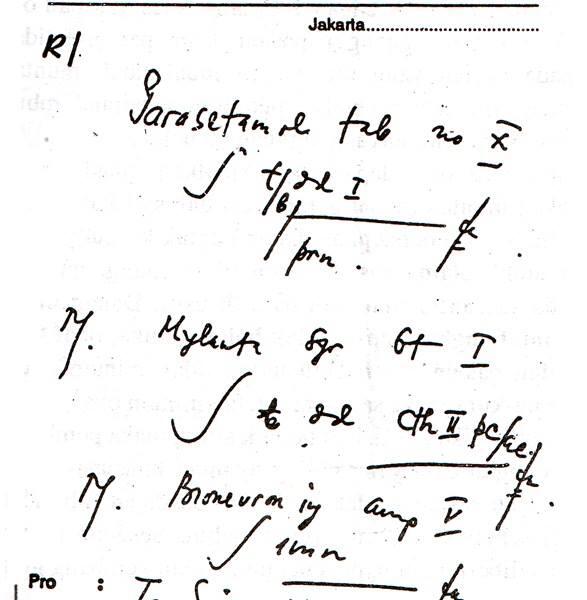 Jakarta..............................
R/.
Parasetamol tab no X
∫ t/b dd I
prn.
R/. Mylanta Syr bt I
∫ t dd Cth II pc/ac.
R/. Bioneuron inj amp V
∫ 1mm
Pro :